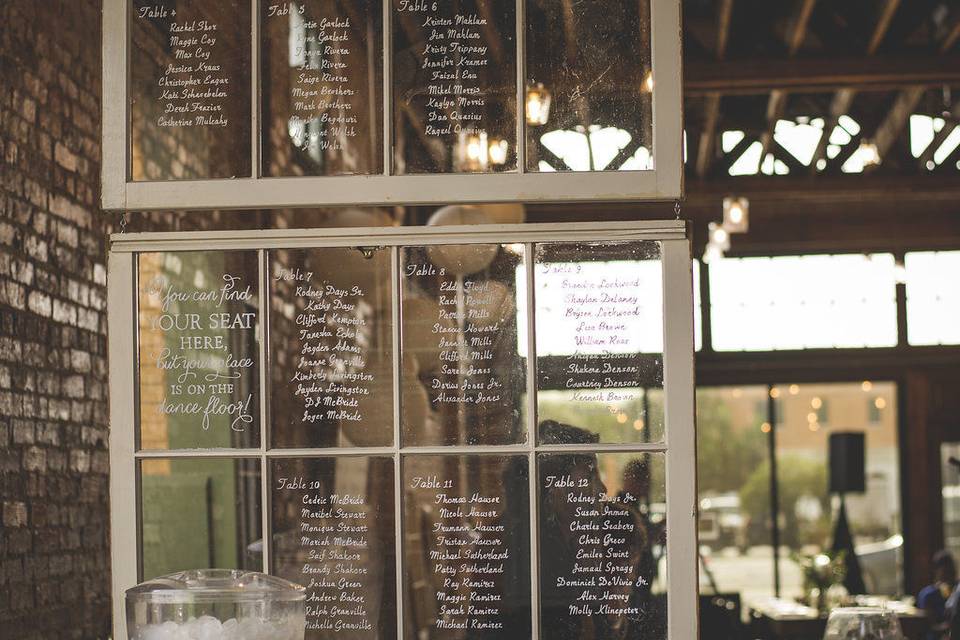 Table 4
Rachel Shor
Maggie Coy
Max Coy
Jessica Kraus
Christopher Eagar
Kati Schnebelen
Derek Frazier
Catherine Mulcahy
Table 5
Katie Garlock
Garlock
Tonya Rivera
Felix Rivera
Saige Rivera
Megan Brothers
Mark Brothers
Bagdouri
Margaret Welsh
Jim Welsh
Table 6
Kristen Mahlum
Jim Mahlum
Kristy Trippany
Jennifer Kramer
Faizal Enu
Mikel Morris
Kaylyn Morris
Dan Quasius
Raquel Quasius
You can find
YOUR SEAT
HERE,
but your place
IS ON THE
dance floor!
Table 7
Rodney Days Sr.
Kathy Days
Clifford Kempton
Tanesha Echols
Jayden Adams
Joanne Granville
Kimberly Livingston
Jayden Livingston
DJ McBride
Joyce McBride
Table 8
Eddy Floyd
Rachel Powell
Patrice Mills
Stancio Howard
Jannett Mills
Clifford Mills
Sarah Jones
Darius Jones Jr.
Alexander Jones
Table 9
Brandon Lockwood
Shaylan Delaney
Brysen Lockwood
Lisa Brown
William Ross
Abigea Denson
Shakera Denson
Courtney Denson
Kenneth Brown
Table 10
Cedric McBride
Maribel Stewart
Monique Stewart
Mariah McBride
Saif Shakoor
Brandy Shakoor
Joshua Green
Andrew Baker
Ralph Granville
Michelle Granville
Table 11
Thomas Hauser
Nicole Hauser
Trumann Hauser
Tristan Hauser
Michael Sutherland
Patty Sutherland
Ray Ramirez
Maggie Ramirez
Sarah Ramirez
Michael Ramirez
Table 12
Rodney Days Jr.
Susan Inman
Charles Seaberg
Chris Greco
Emilee Swint
Jamaal Spragg
Dominick DeVivio Jr.
Alex Harvey
Molly Klinepeter